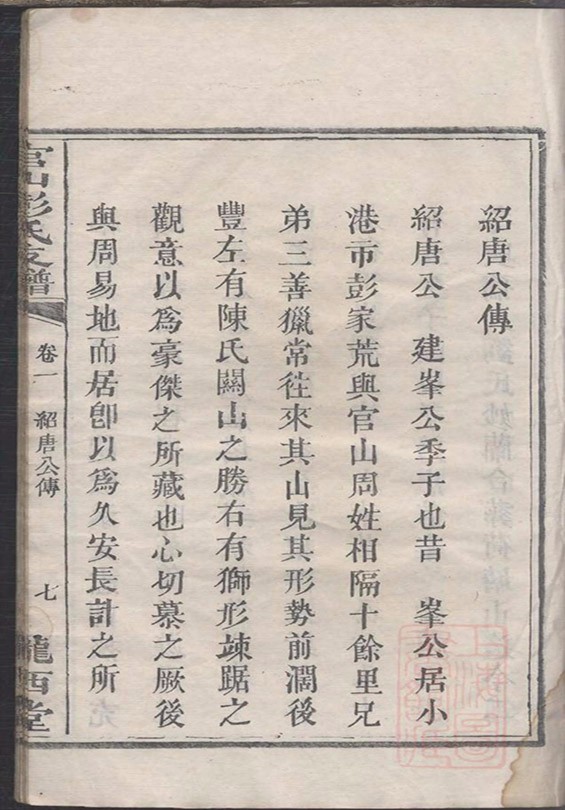 紹唐公傳
紹唐公　建峯公季子也昔　峯公居小
港市彭家荒與官山周姓相隔十餘里兄
弟三善獵常徃來其山見其形勢前濶後
豐左有陳氏闗山之勝右有獅形竦踞之
觀意以爲豪傑之所藏也心切慕之厥後
與周易地而居卽以爲久安長計之所
官山彭氏支譜
卷一
紹唐公傳
七
隴西堂